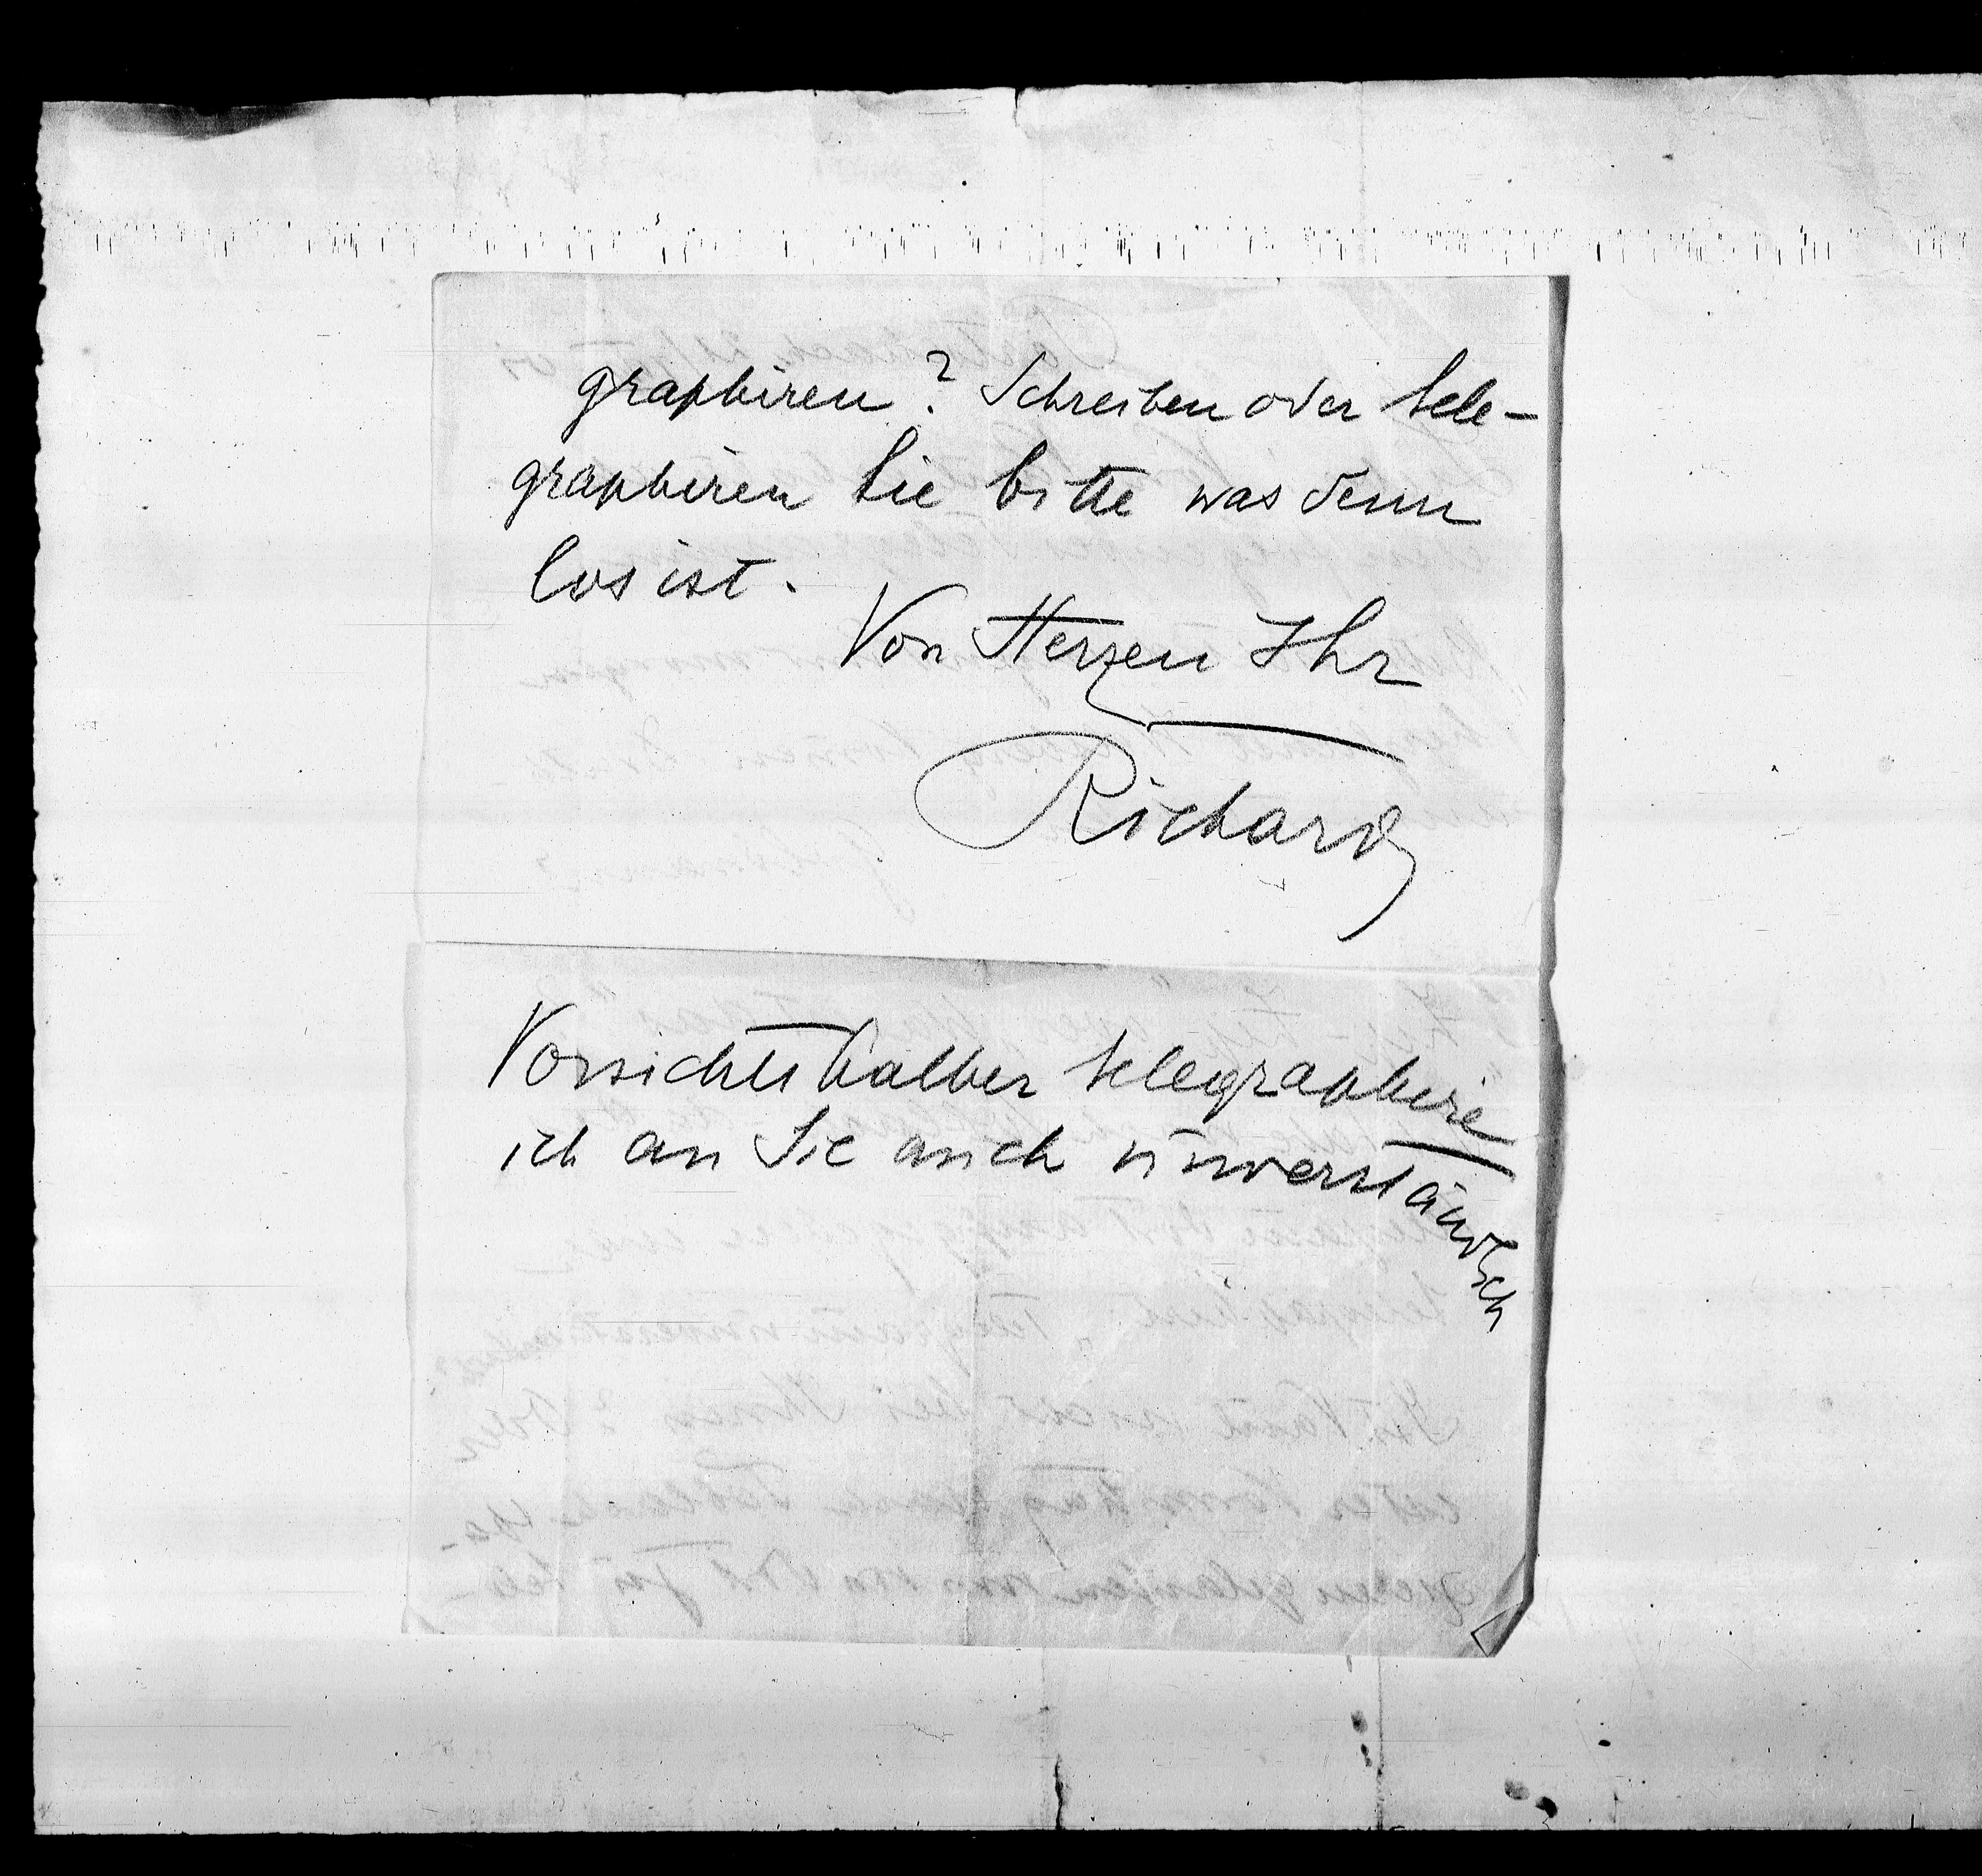 graphiren? Schreiben oder tele-
graphiren Sie bitte was denn
los ist.
Von Herzen Ihr
Richard
Vorsichtshalber telegraphire
ich an Sie auch unverständlich